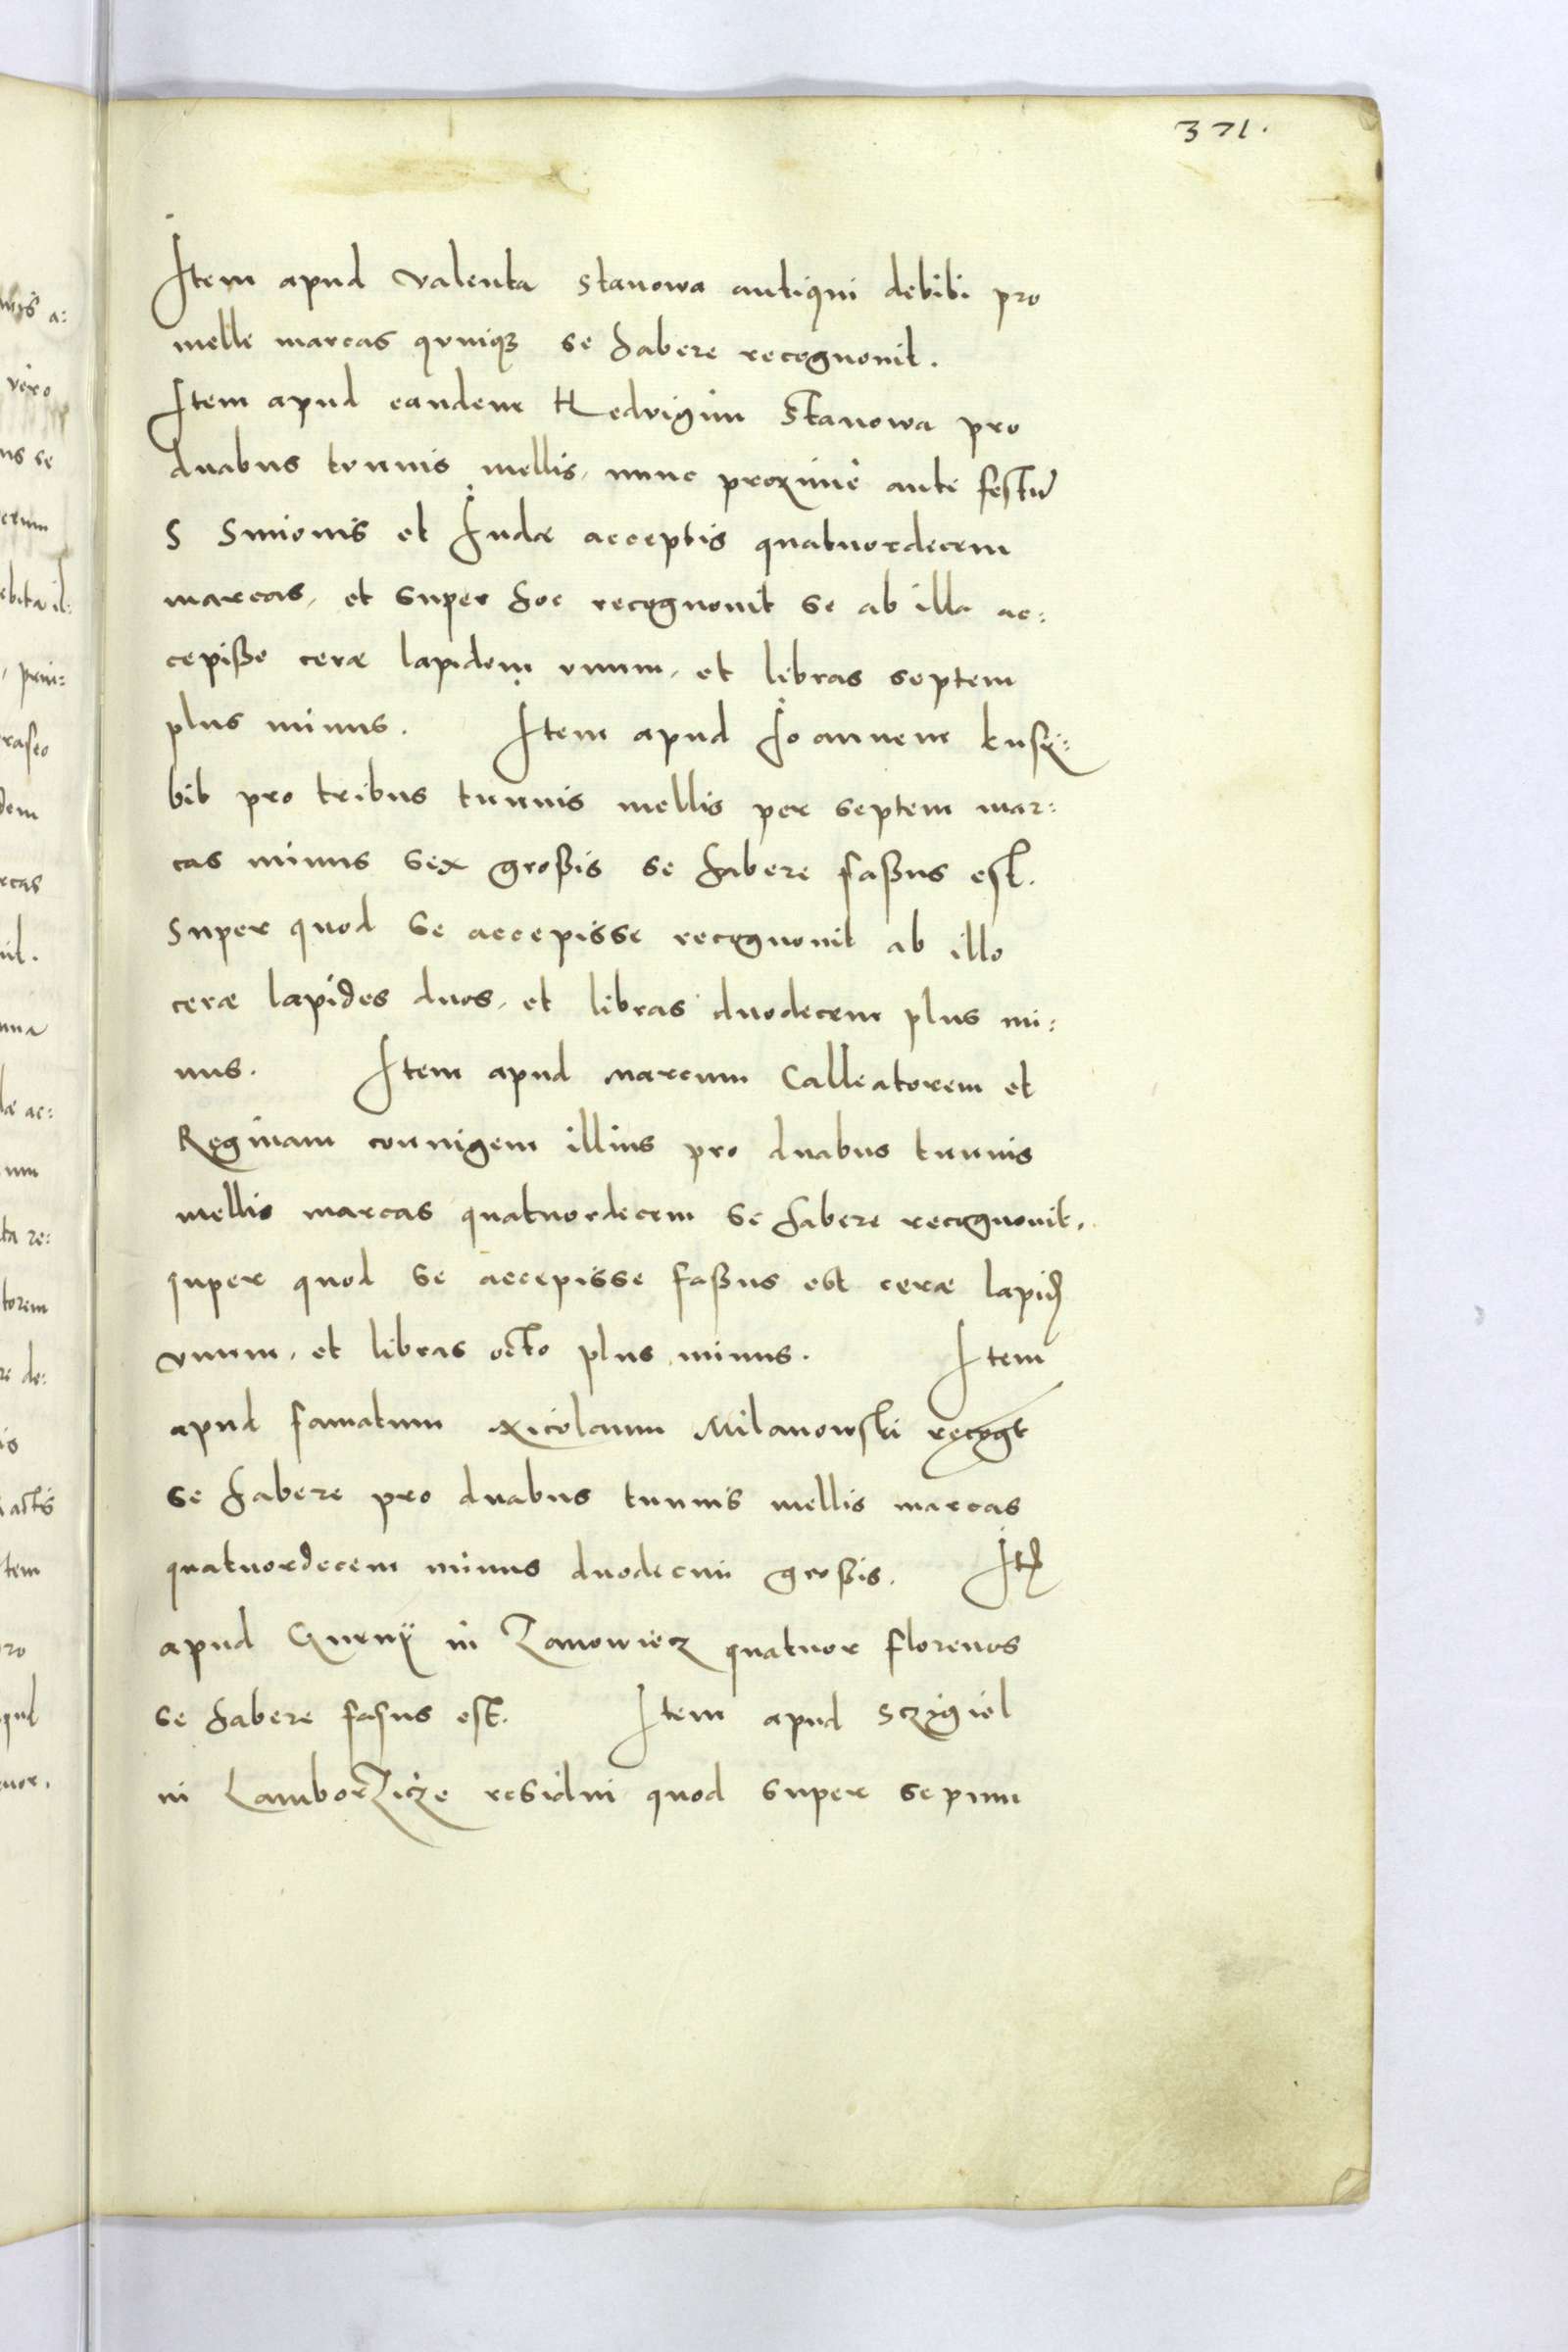 371.
Item apud Valenta Stanowa antiqui debiti pro
melle marcas quinqz se habere recognouit.
Item apud eandem Hedvigim Stanowa pro
duabus tunnis mellis, nunc proxime ante festu
S Simonis et Iudæ acceptis quatuordecem
marcas, et super hoc recognouit se ab illa ac:
cepiße ceræ lapidem vnum, et libras septem
plus minus. Item apud Joannem kusy:
bib pro tribus tunnis mellis per septem mar:
cas minus sex großis se habere faßus est.
Super quod se accepisse recognouit ab illo
ceræ lapides duos, et libras duodecem plus mi:
nus. Item apud Marcum Calleatorem et
Reginam coniugem illius pro duabus tunnis
mellis marcas quatuordecem se habere recognouit,
super quod se accepisse faßus est ceræ lapid
vnum, et libras octo plus minus. Item
apud famatum Nicolaum Milanowski recogt
se habere pro duabus tunnis mellis marcas
quatuordecem minus duodecim großis. It
apud Gurny in Zanowiecz quatuor florenos
se habere fasus est. Item apud Sczigiel
in Lamborzicze residui quod super sepum